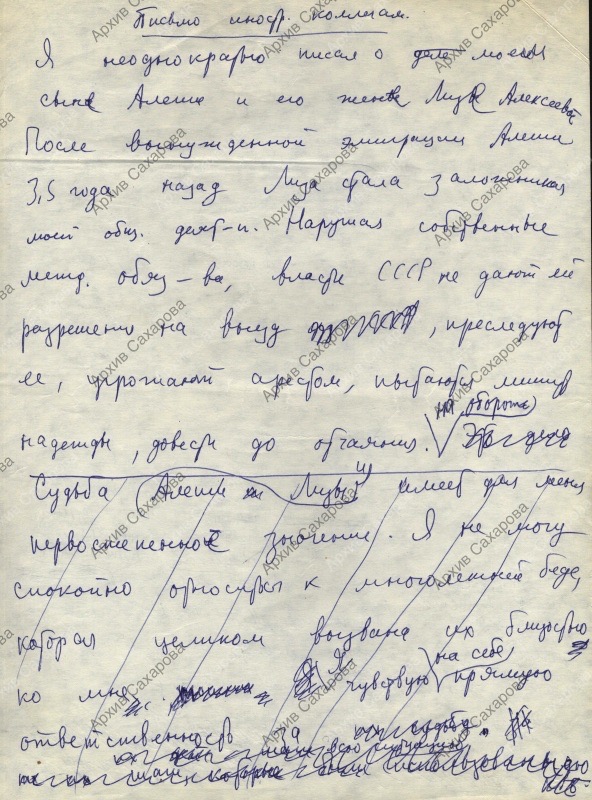 Письмо иностр. коллегам.
Я неоднократно писал о деле моего
сына Алеши и его жене Лизе Алексеевой
После вынужденной эмиграции Алеши
3,5 года назад Лиза стала заложником
моей общ. деят-и. Нарушая собственные
межд. обяз-ва, власти СССР не дают ей
разрешения на выезд, преследуют
ее, угрожают арестом, пытаются лишить
надежды, довести до отчаяния.
на обороте
Судьба Алеши и Лизы имеет для меня
первостепенное значение. Я не могу
спокойно относиться к многолетней беде,
которая целиком вызвана их близостью
ко мне. Я чувствую на себе прямую
ответственность за судьбу
Архив Сахарова